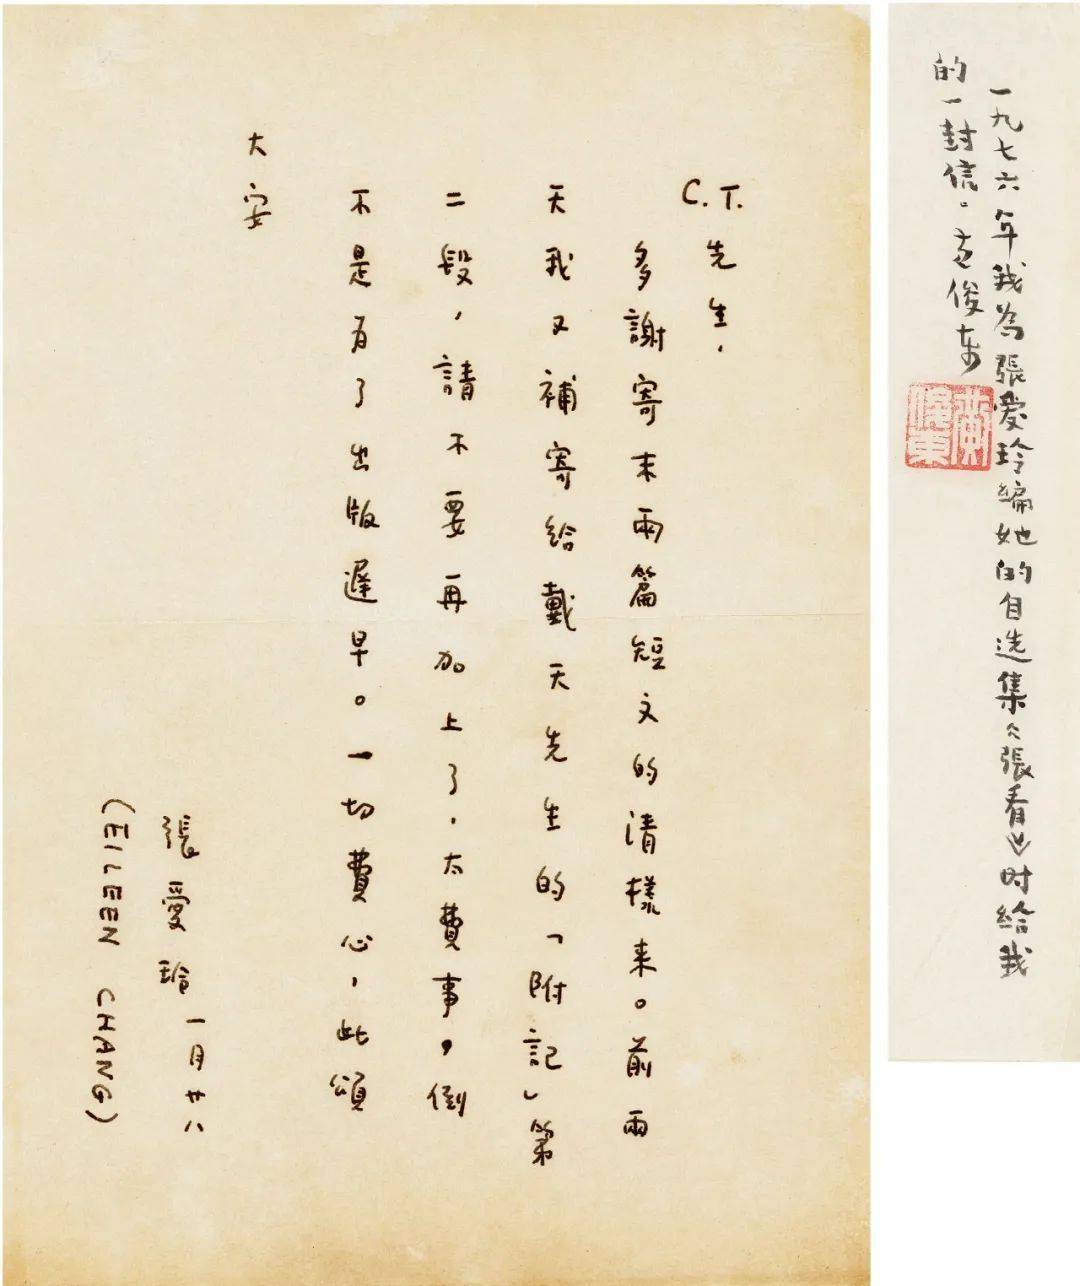 C.T.先生，
多謝寄末兩篇短文的清樣来。前兩
天我又補寄給戴天先生的「附記」第
二段，請不要再加上了，太費事。倒
不是为了出版遲早。一切費心，此頌
大安
張愛玲 一月廿八
(EILEEN CHANG)
一九七六年我為張愛玲編她的自选集《張看》时給我
的一封信。黄俊东
黃俊東